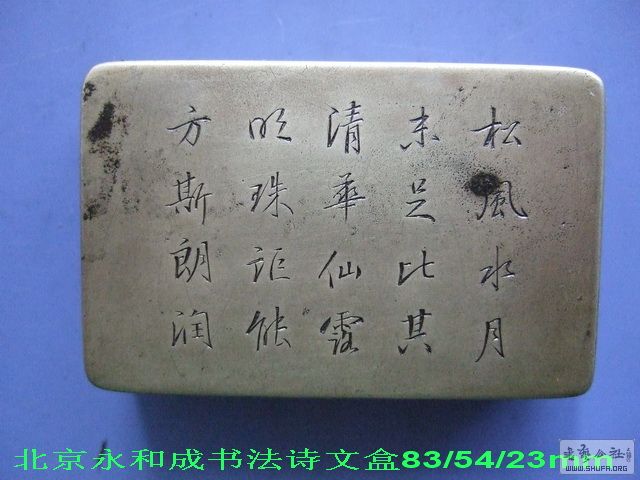 松風水月
未足比其
清華仙露
明珠詎能
方斯朗潤
北京永和成书法诗文盒83/54/23mm